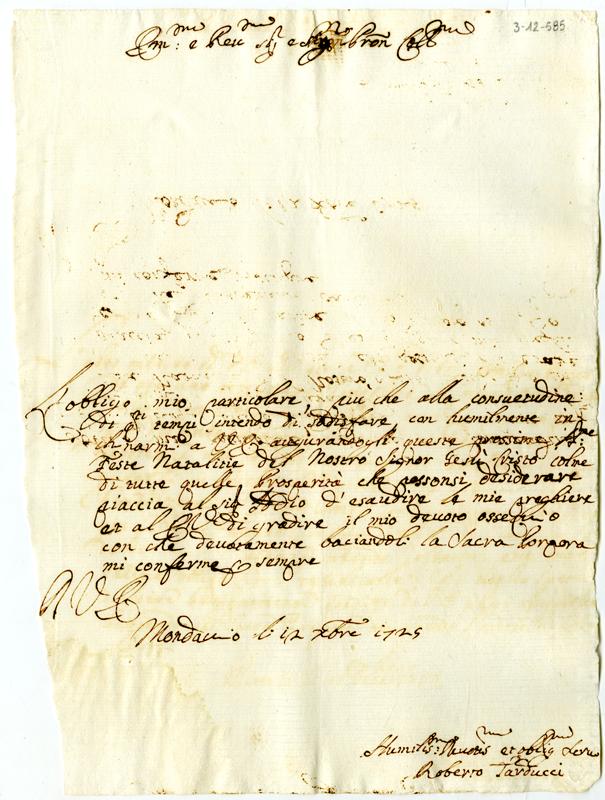 3-12-585
Em:mo e Rev:mo Sig:r e
L'obligo mio particolare piu che alla consuetudine
di q.ti tempi intendo di sodisfare con humilmente in
chinarmi a V.E. augurandogli queste prossime S:me
Feste Natalitie del Nostro Signor Gesù Cristo colme
di tutte quelle prosperità che possonsi desiderare
piaccia al sig Iddio d'esaudire le mie preghiere
et al di gradire il mio devoto ossequio
con che devotamente baciandoli la Sacra Porpora
mi confermo p sempre
A V E
Mondavio li 12 Xbre 1725
Humiliss:mo et oblig:mo Serv
Roberto Tarducci